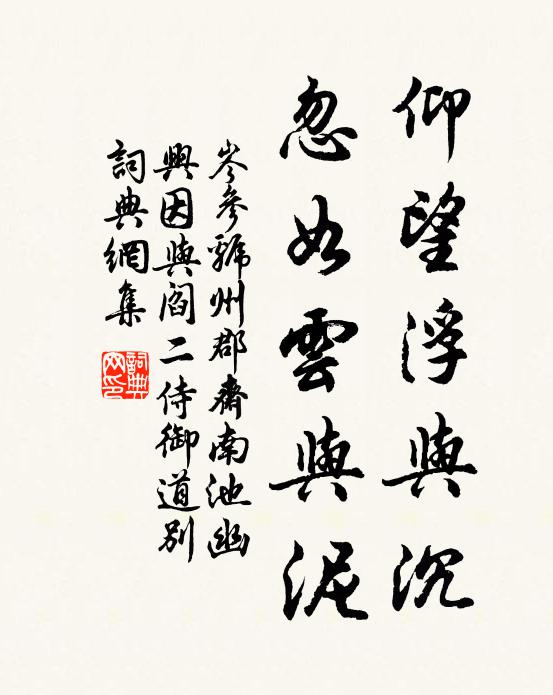 仰望浮與沉
忽如雲與泥
岑參虢州郡齋南池幽
興因與閻二侍御道別
詞典網集
詞典网印